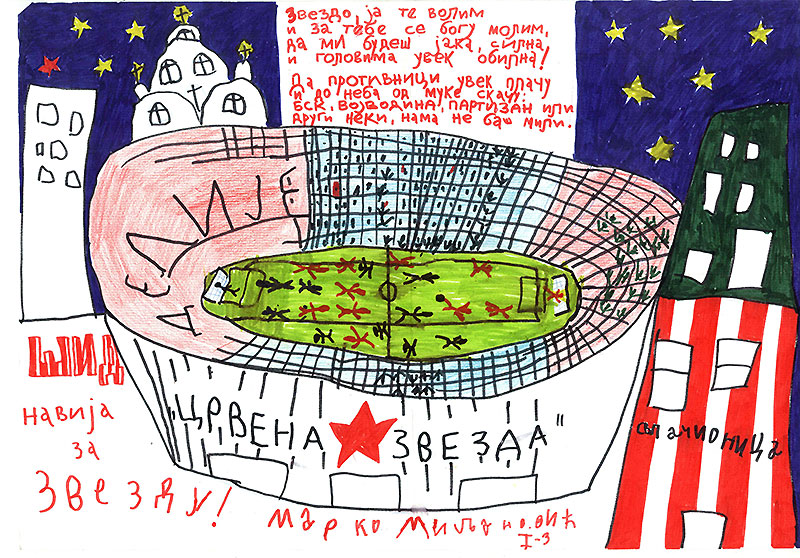 Звездо, ја те волим
и за тебе се богу молим,
да ми будеш јака, силна,
и головима увек обилна!
Да противници увек плачу
и до неба од муке скачу:
БСК, Војводина, Партизан или
други неки, нама не баш мили.
ДЕЛИЈЕ
ШИД
навија
за
Звезду!
„ЦРВЕНА ЗВЕЗДА"
свлачионица
Марко Миљановић
I-3